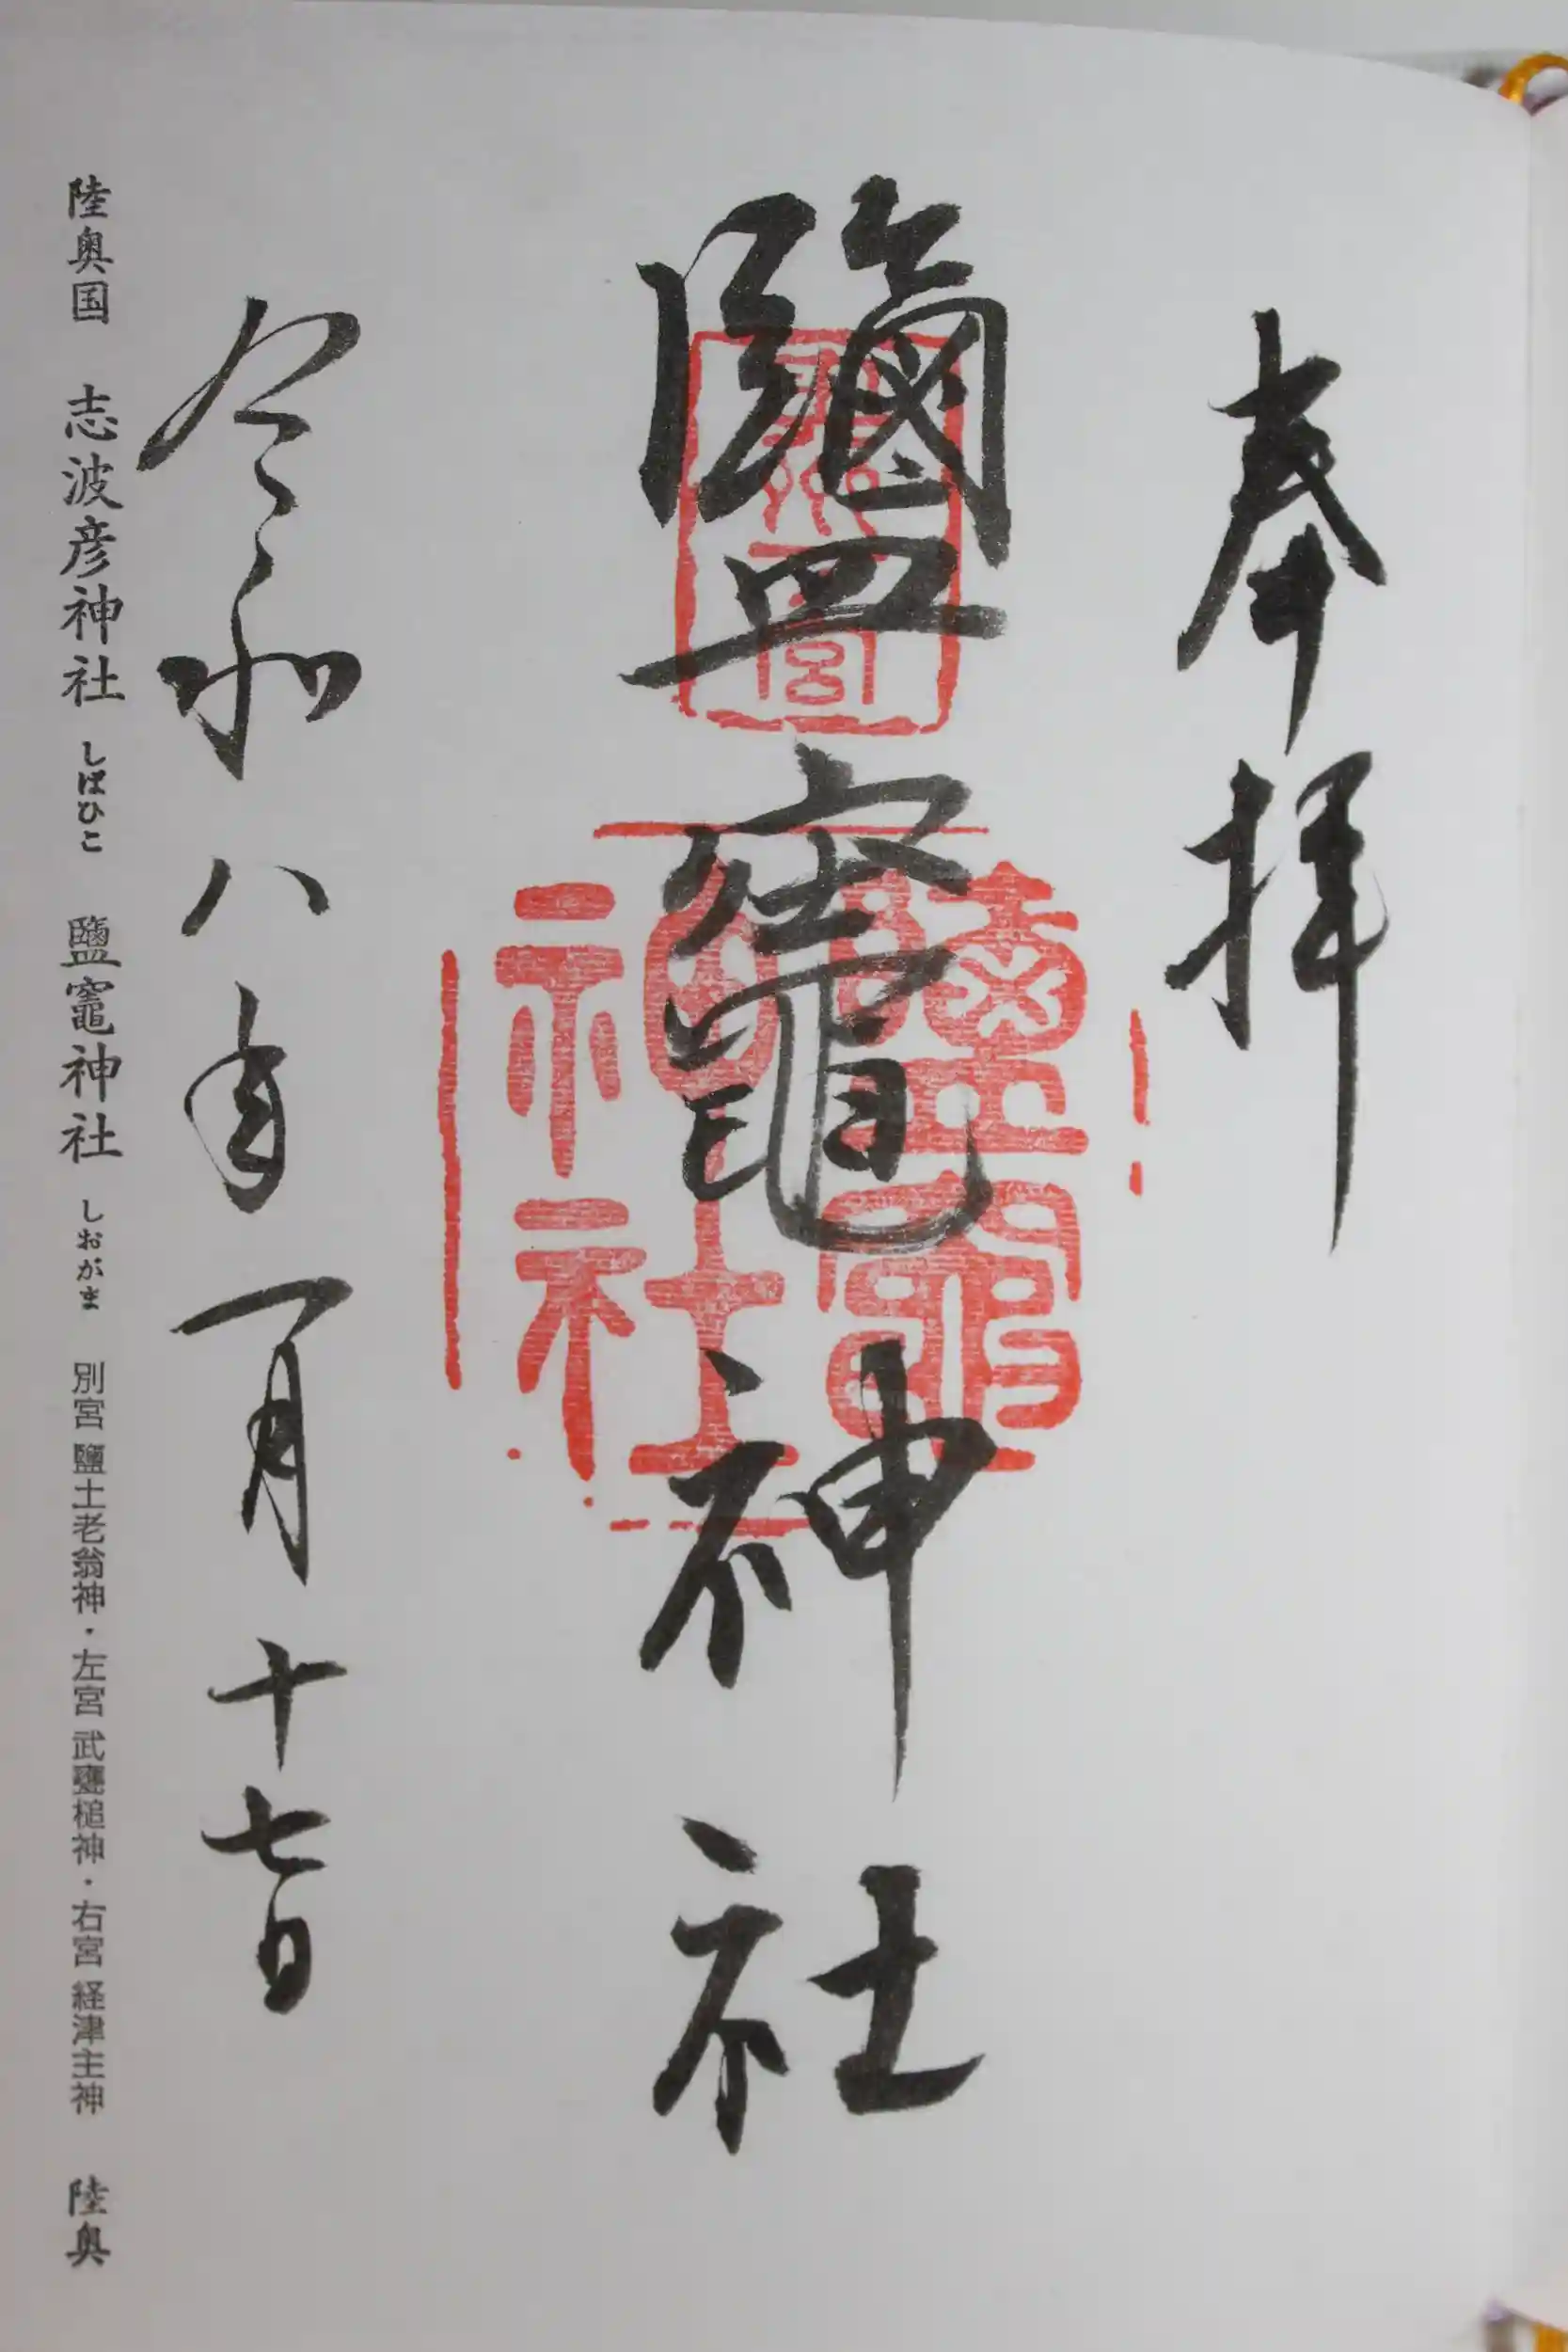 奉拝
鹽竈神社
奥州一宮
令和八年一月十七日
陸奥国 志波彦神社 しばひこ 鹽竈神社 しおがま 別宮 鹽土老翁神・左宮 武甕槌神・右宮 経津主神 陸奥